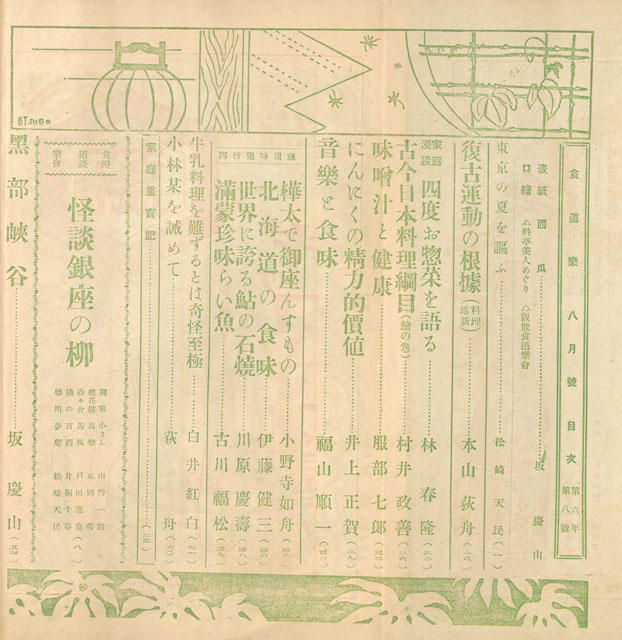 食道樂 八月號 目次 第六年 第八號
表紙 西瓜 坂慶山
口繪 △料亭美人めぐり △飯能食道樂會
東京の夏を謳ふ 松崎天民(一)
復古運動の根據(料理維新) 本山荻舟
家庭漫談 四度お惣菜を語る 林春隆
古今日本料理綱目(鱠の卷) 村井政善
味噌汁と健康 服部七郎
にんにくの精力的價値 井上正賀
音樂と食味 福山順一
樺太で御座んすもの 小野寺如舟
北海道の食味 伊藤健三
世界に誇る鮎の石燒 川原慶壽
滿蒙珍味らい魚 古川福松
家庭重寳記
牛乳料理を難ずるとは奇怪至極 白井紅白
小林某を誡めて 荻舟
食道樂 怪談會
怪談銀座の柳
柳家小さん 山野一郎
松崎天民
黑部峽谷 坂慶山